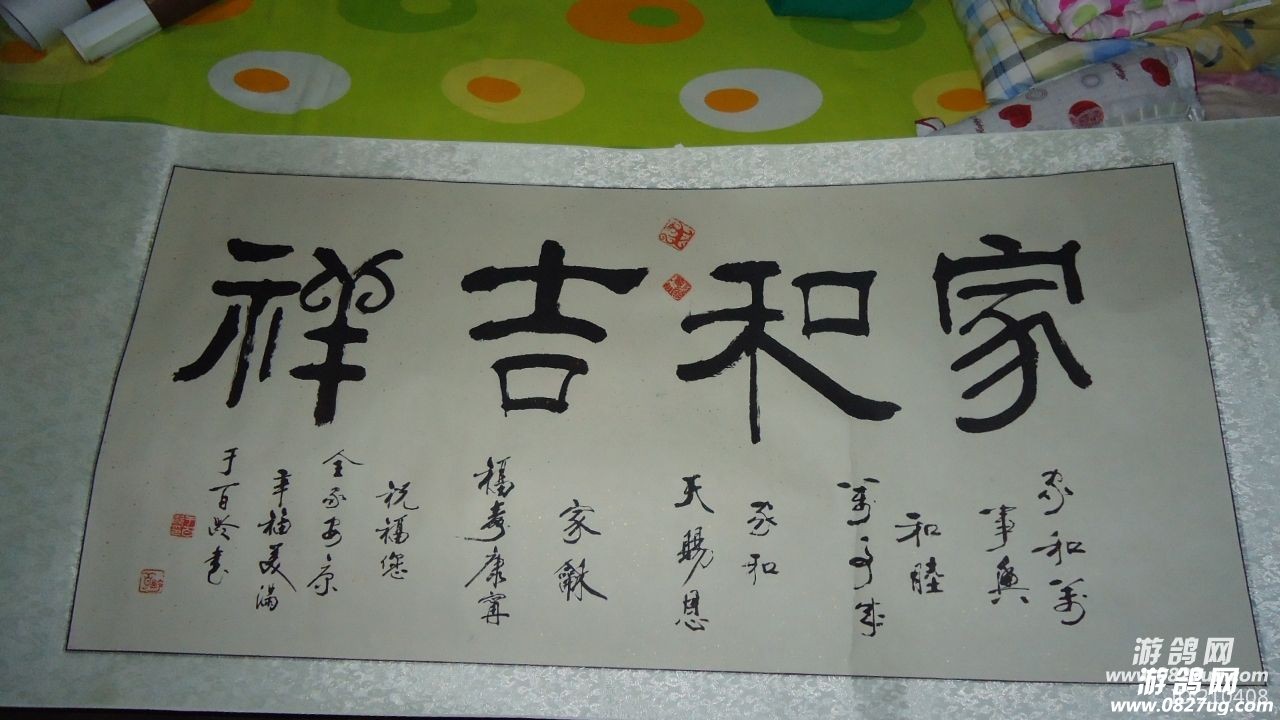 家和吉祥
家和萬
事興
和睦
萬事成
家和
天賜恩
家龢
福壽康寧
祝福您
全家安康
幸福美滿
于百齡書
游鸽网
www.0827ug.com
游鸽网
www.0827ug.com